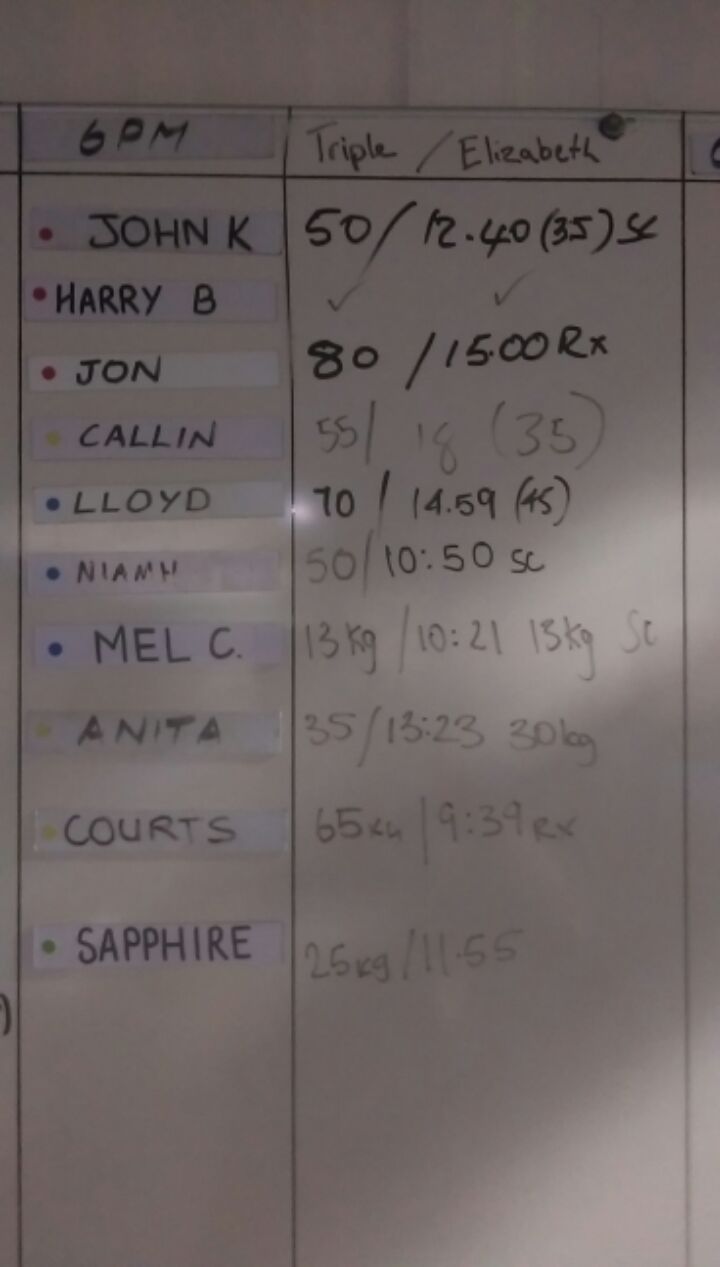 6PM Triple / Elizabeth
JOHN K 50 / 12.40 (35) SC
HARRY B ✓ ✓
JON 80 / 15.00 Rx
CALLIN 55 / 18 (35)
LLOYD 70 / 14.59 (45)
NIAMH 50 / 10:50 SC
MEL C. 13kg / 10:21 13kg SC
ANITA 35 / 13:23 30kg
COURTS 65kg / 9:39 Rx
SAPPHIRE 25kg / 11.55